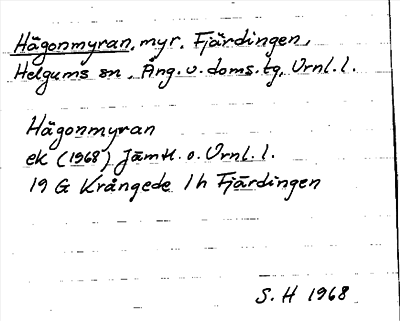 Hägonmyran, myr, Fjärdingen,
Helgums sn, Ång. v. doms. tg, Vrnl. l.
Hägonmyran
ek (1968) Jämtl. o. Vrnl. l.
19 G Krångede 1 h Fjärdingen
S. H 1968